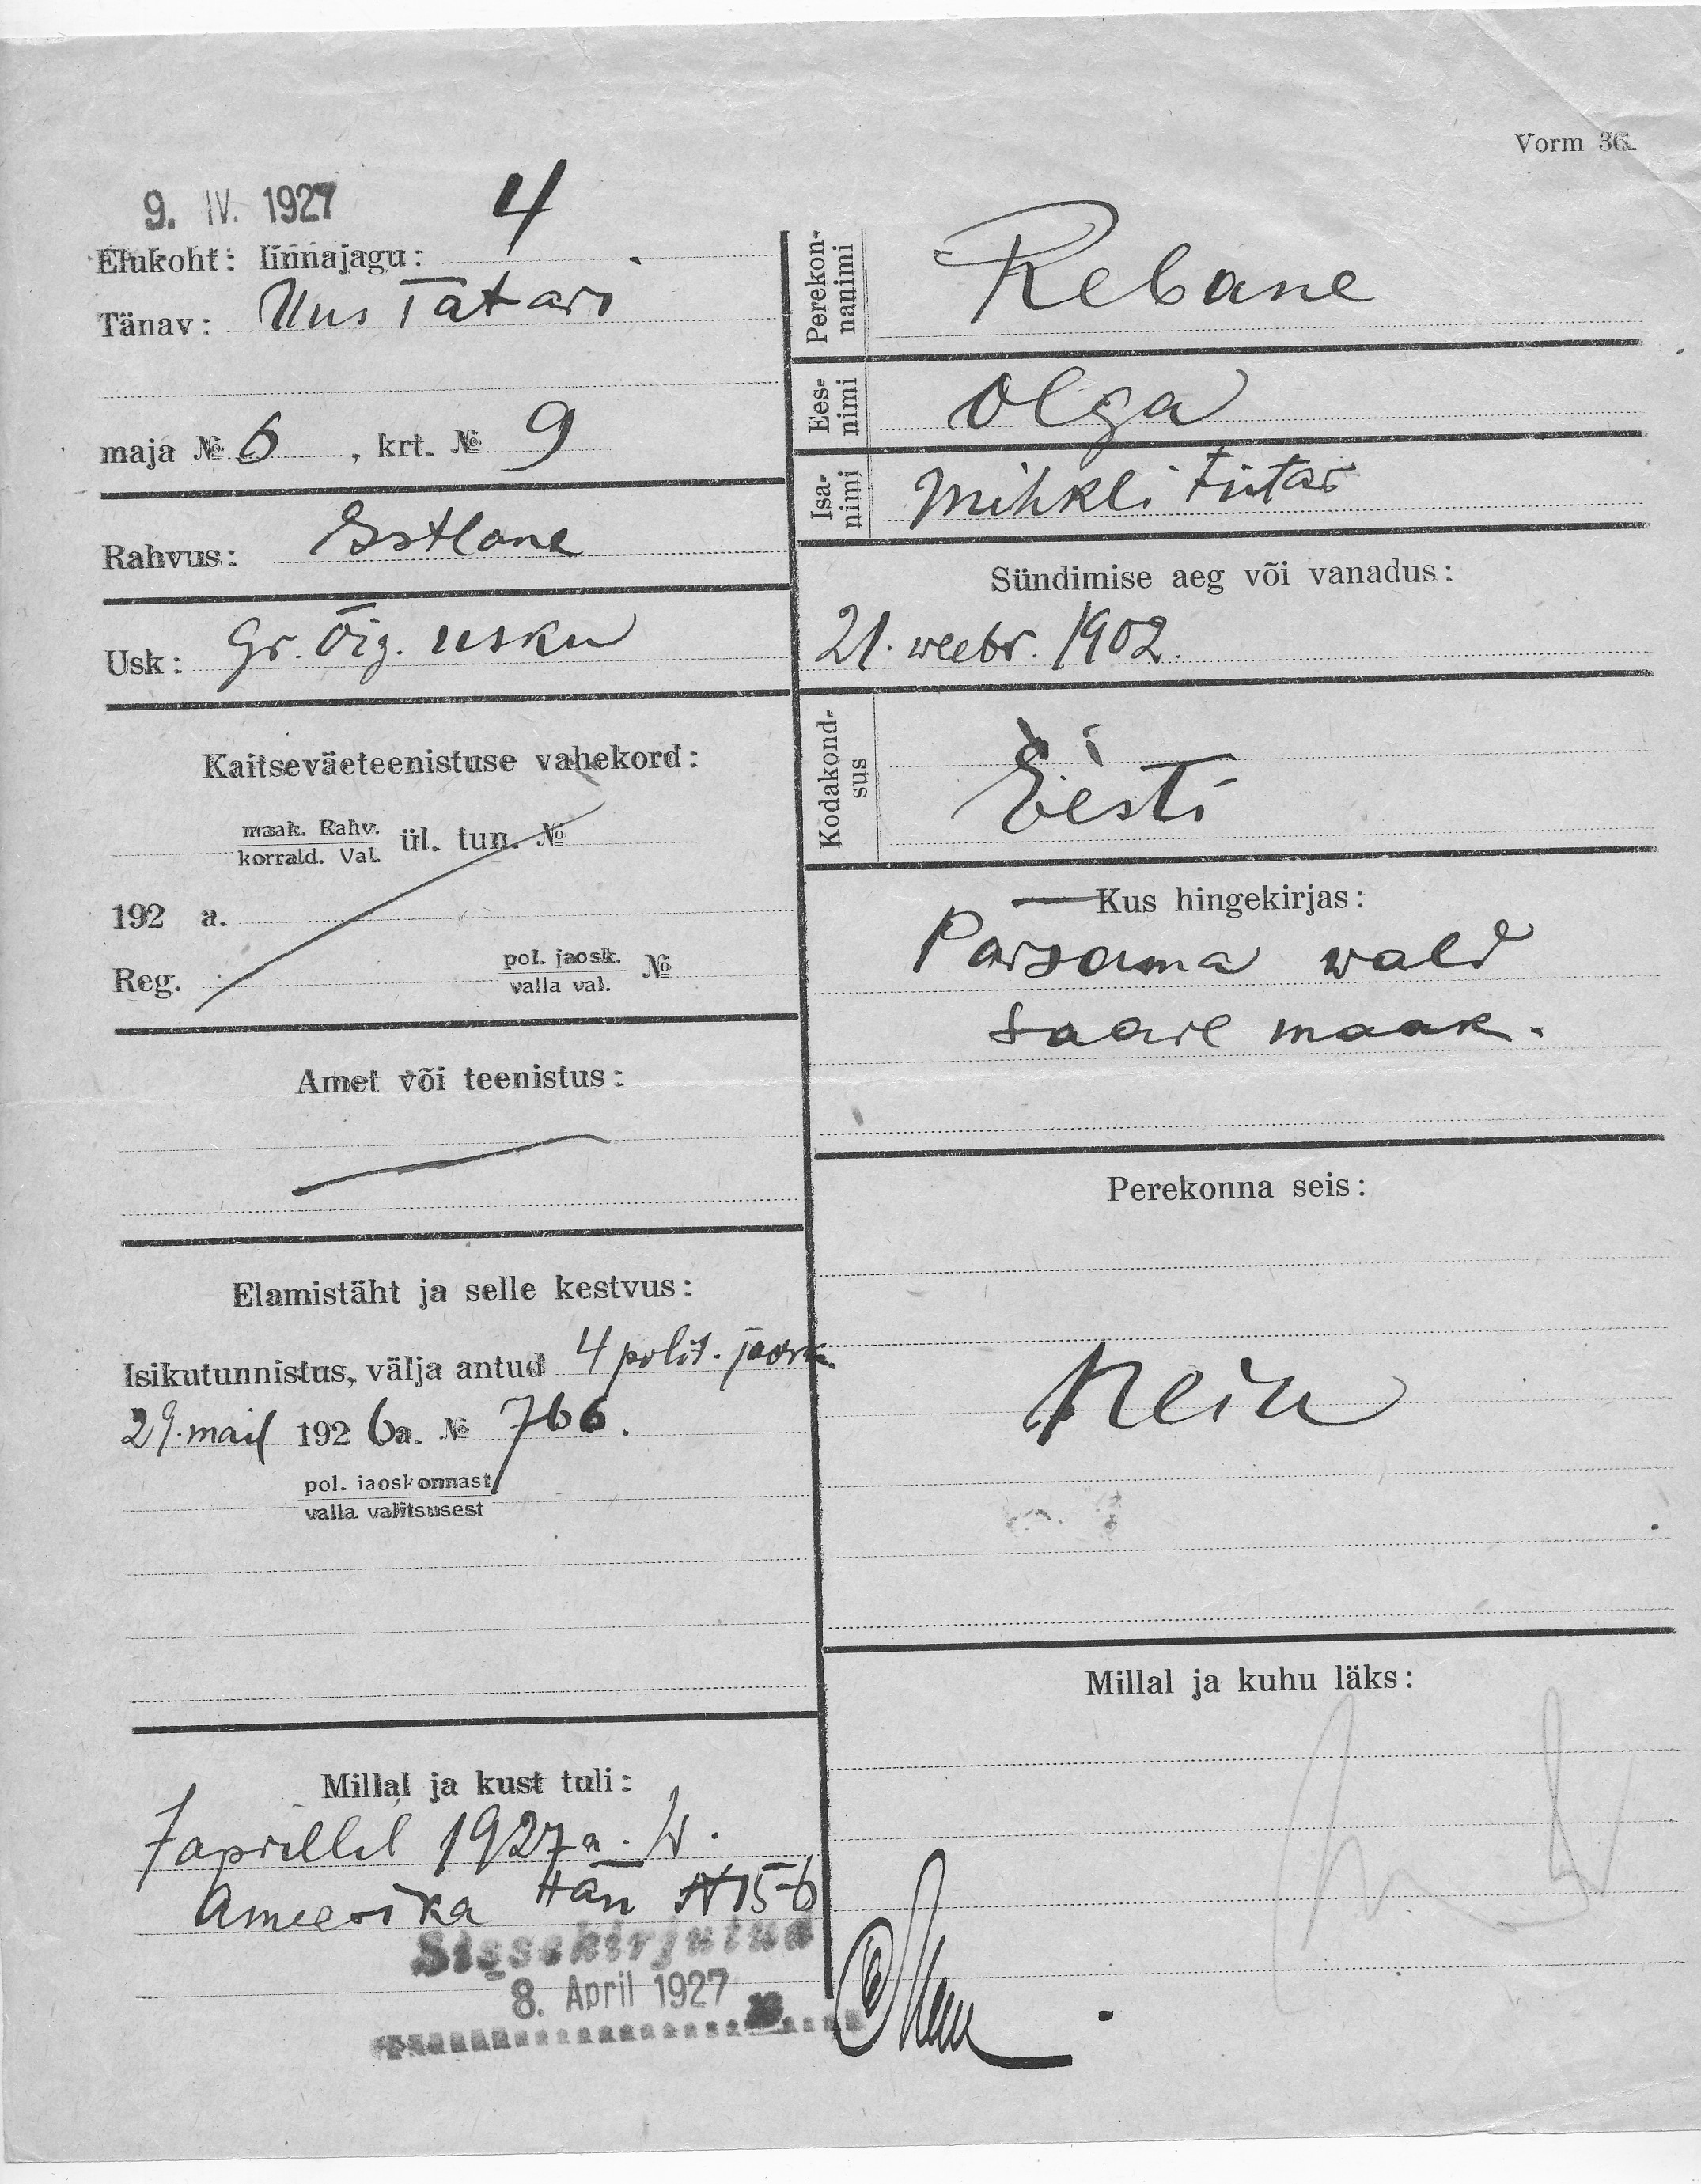 Vorm 36.
9. IV. 1927
4
Elukoht: linnajagu:
Tänav: Uus Tatari
maja № 6, krt. № 9
Rahvus: Estlane
Usk: Gr. Õig. usku
Kaitseväeteenistuse vahekord:
maak. Rahv.
korrald. Val. ül. tun. №
192 a.
Reg. pol. jaosk. №
valla val.
Amet või teenistus:
Elamistäht ja selle kestvus:
Isikutunnistus, välja antud 4 polit. jaosk
29. mail 1926a. № 766.
pol. jaoskonnast
valla valitsusest
Millal ja kust tuli:
7 aprillil 1927 a.
Ameerika tän № 15-6
Sissekirjutud
8. April 1927
Perekonnanimi
Rebane
Eesnimi
Olga
Isanimi
Mihkli tütar
Sündimise aeg või vanadus:
21. weebr. 1902.
Kodakondsus
Eesti
Kus hingekirjas:
Parsama wald
Saare maak.
Perekonna seis:
Neiu
Millal ja kuhu läks: